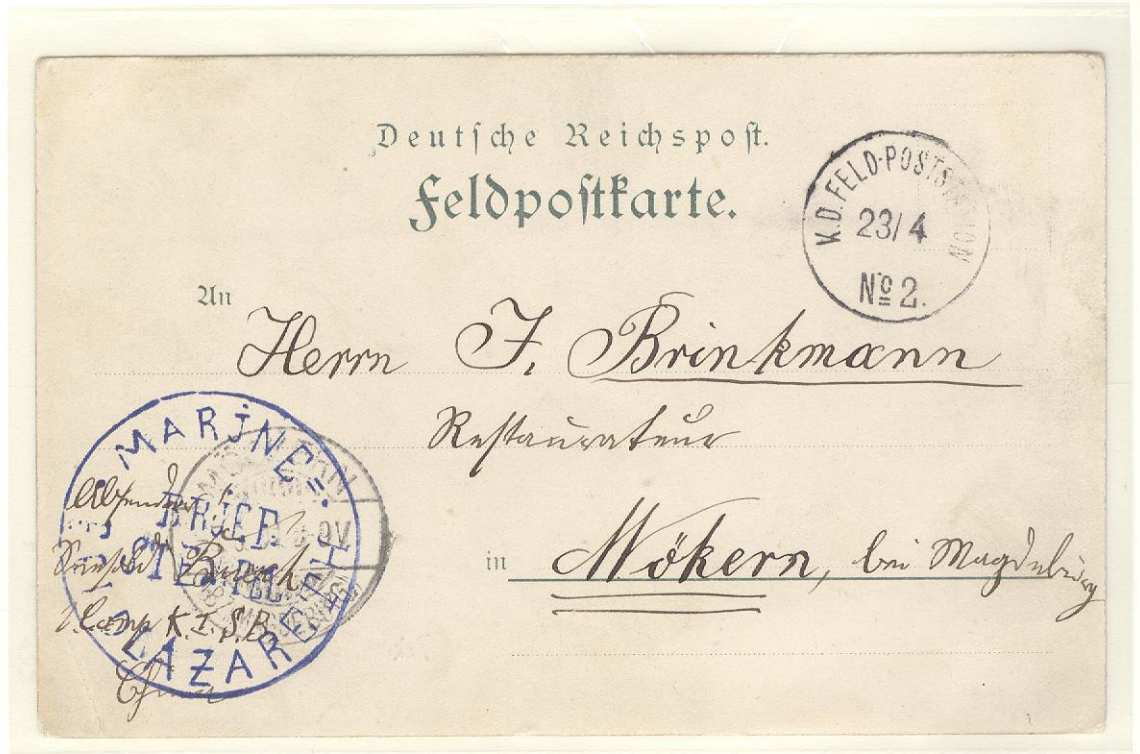 Deutsche Reichspost.
Feldpostkarte.
K.D. FELD-POSTSTATION
23/4
No 2.
An
Herrn J. Brinkmann
Restaurateur
in Mökern, bei Magdeburg
MARINE=
BRIEF.
STEMPEL
LAZARETH
Absender
1. Comp K. I. S. B.
China